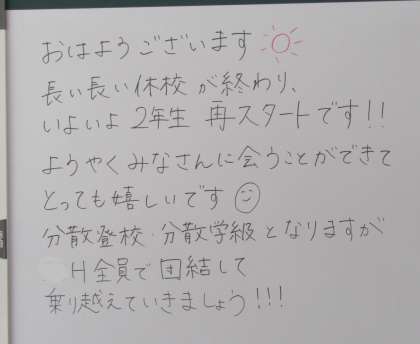 おはようございます
長い長い休校が終わり、
いよいよ2年生 再スタートです!!
ようやくみなさんに会うことができて
とっても嬉しいです
分散登校・分散学級となりますが
H全員で団結して
乗り越えていきましょう!!!